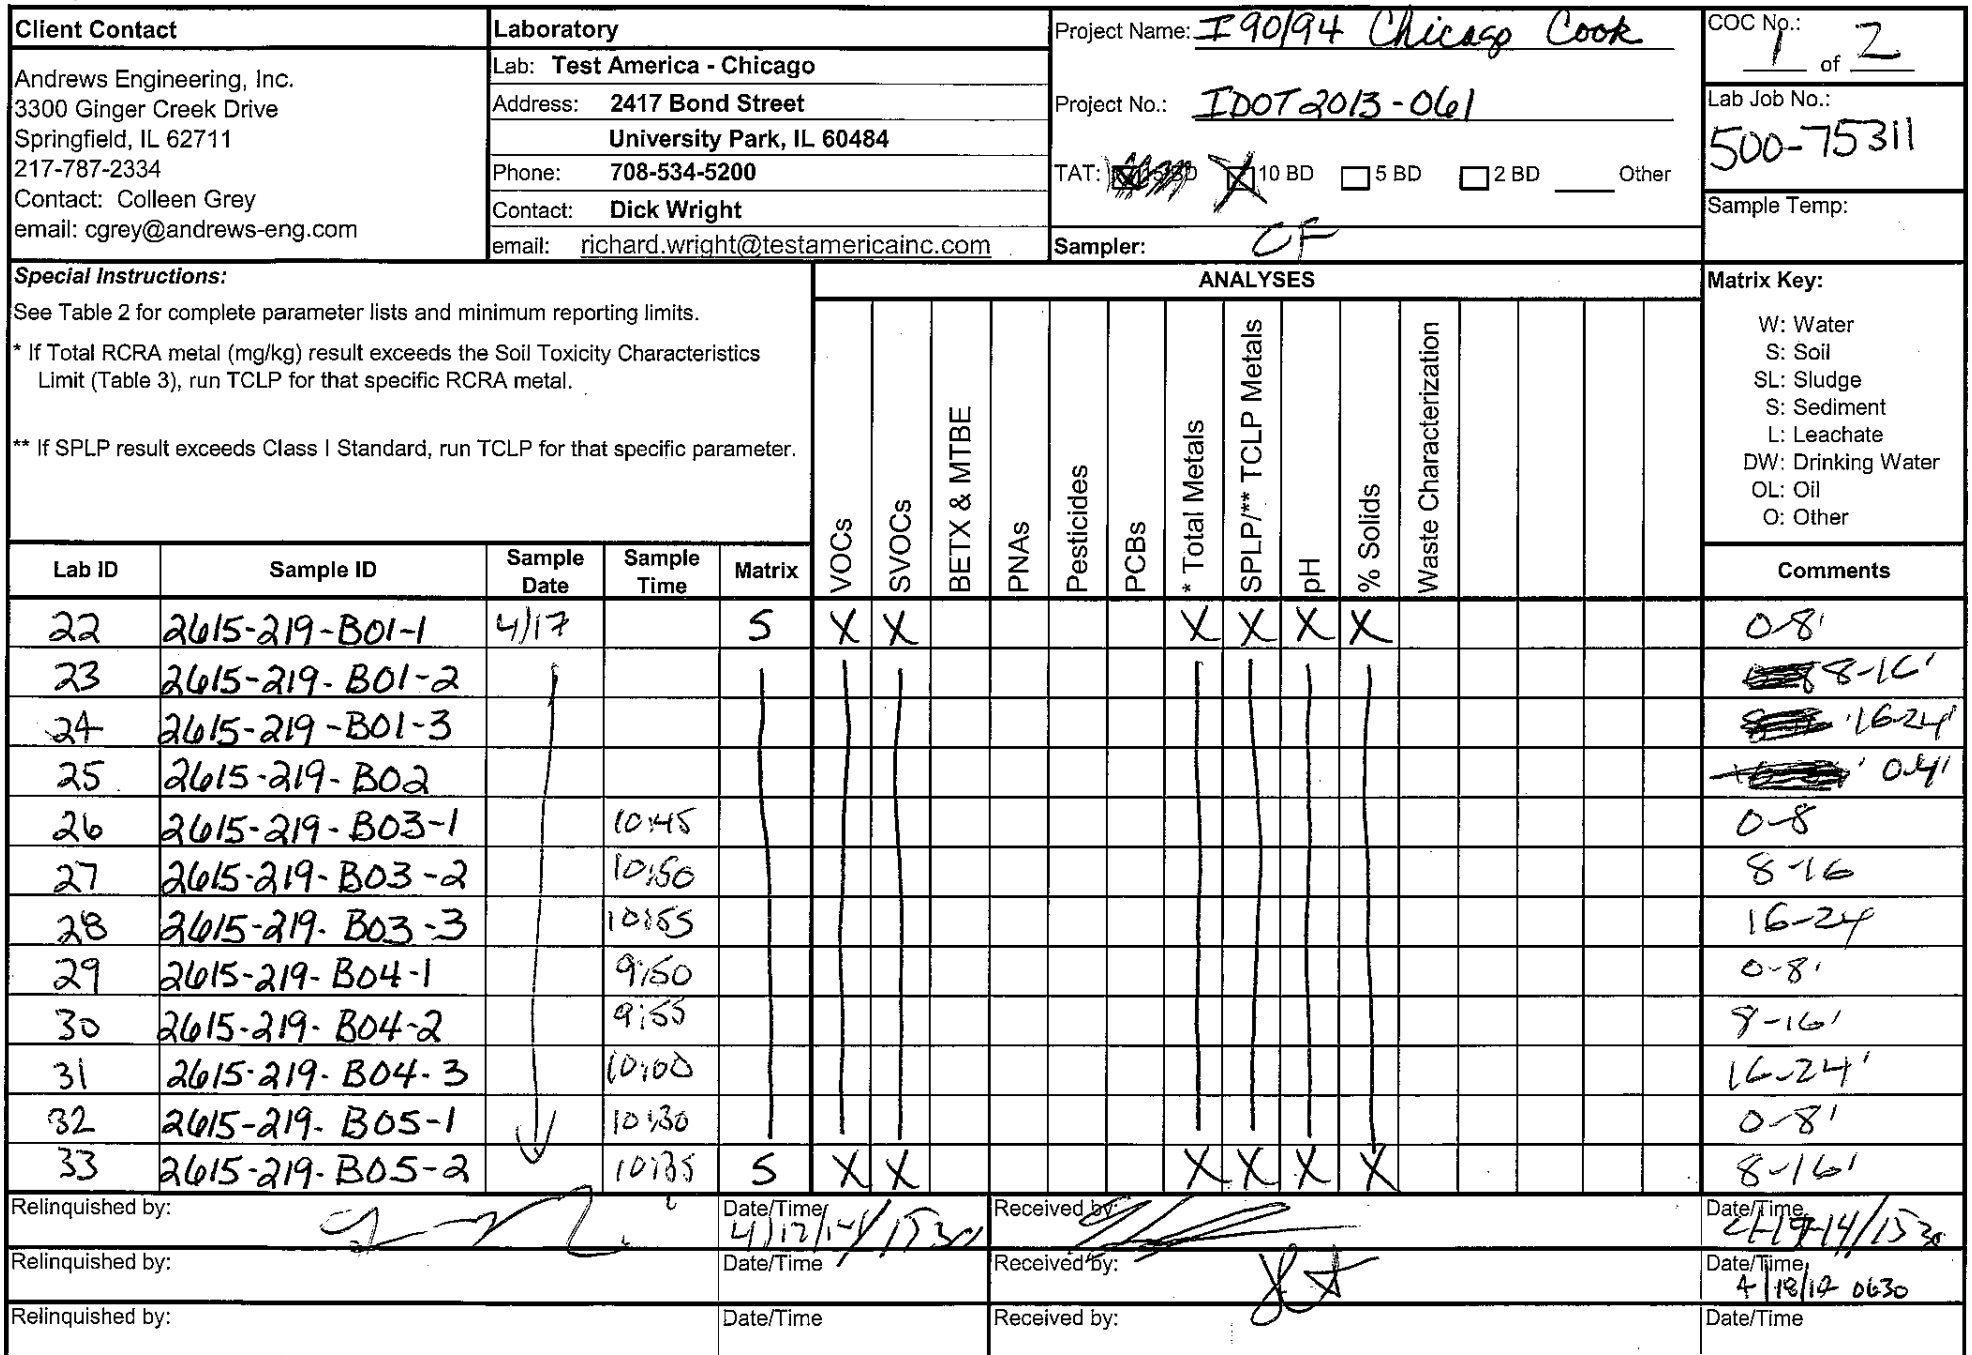 Client Contact
Andrews Engineering, Inc.
3300 Ginger Creek Drive
Springfield, IL 62711
217-787-2334
Contact: Colleen Grey
email: cgrey@andrews-eng.com
Laboratory
Lab: Test America - Chicago
Address: 2417 Bond Street
University Park, IL 60484
Phone: 708-534-5200
Contact: Dick Wright
email: richard.wright@testamericainc.com
Project Name: I90/94 Chicago Cook
Project No.: IDOT2013-061
TAT: 10 BD 5 BD 2 BD Other
Sampler: CF
COC No.:
1 of 2
Lab Job No.:
500-75311
Sample Temp:
Special Instructions:
See Table 2 for complete parameter lists and minimum reporting limits.
* If Total RCRA metal (mg/kg) result exceeds the Soil Toxicity Characteristics
Limit (Table 3), run TCLP for that specific RCRA metal.
** If SPLP result exceeds Class I Standard, run TCLP for that specific parameter.
ANALYSES
VOCs
SVOCs
BETX & MTBE
PNAs
Pesticides
PCBs
* Total Metals
SPLP/** TCLP Metals
pH
% Solids
Waste Characterization
Matrix Key:
W: Water
S: Soil
SL: Sludge
S: Sediment
L: Leachate
DW: Drinking Water
OL: Oil
O: Other
Lab ID Sample ID Sample Date Sample Time Matrix Comments
22 2615-219-B01-1 4/17 S X X X X X X 0-8'
23 2615-219-B01-2 8-16'
24 2615-219-B01-3 16-24'
25 2615-219-B02 0-4'
26 2615-219-B03-1 10:45 0-8
27 2615-219-B03-2 10:50 8-16
28 2615-219-B03-3 10:55 16-24
29 2615-219-B04-1 9:50 0-8'
30 2615-219-B04-2 9:55 8-16'
31 2615-219-B04-3 10:00 16-24'
32 2615-219-B05-1 10:30 0-8'
33 2615-219-B05-2 10:35 S X X X X X X 8-16'
Relinquished by: Date/Time Received by: Date/Time
Relinquished by: Date/Time Received by: Date/Time
0630
Relinquished by: Date/Time Received by: Date/Time